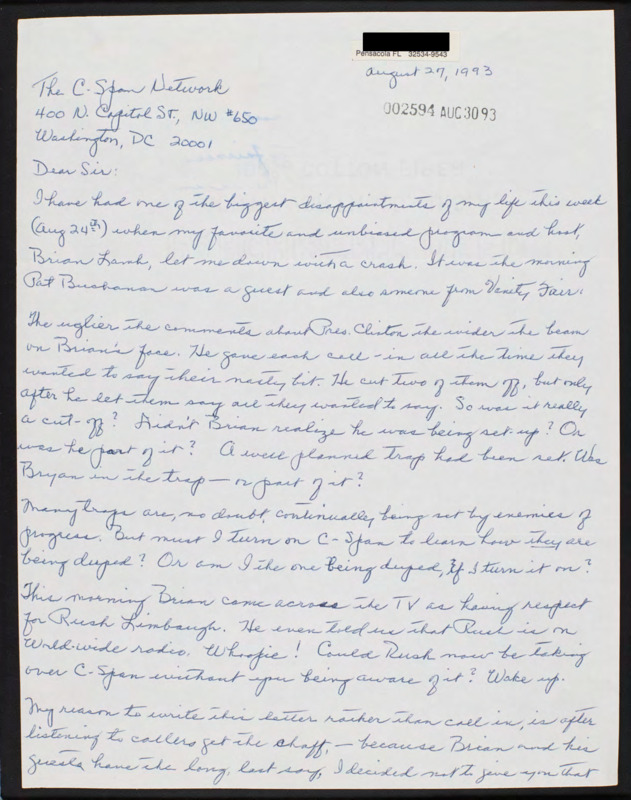 Pensacola FL 32534-9543
August 27, 1993
002594 AUG 30 93
The C-Span Network
400 N. Capitol St., NW #650
Washington, DC 20001
Dear Sir:
I have had one of the biggest disappointments of my life this week
(Aug 24th) when my favorite and unbiased program and host,
Brian Lamb, let me down with a crash. It was the morning
Pat Buchanan was a guest and also someone from Vanity Fair.
The uglier the comments about Pres. Clinton the wider the beam
on Brian's face. He gave each call-in all the time they
wanted to say their nasty bit. He cut two of them off, but only
after he let them say all they wanted to say. So was it really
a cut-off? Didn't Brian realize he was being set-up? Or
was he part of it? A well planned trap had been set. Was
Bryan in the trap — or part of it?
Many traps are, no doubt, continually being set by enemies of
progress. But must I turn on C-Span to learn how they are
being duped? Or am I the one being duped, if I turn it on?
This morning Brian came across the TV as having respect
for Rush Limbaugh. He even told us that Rush is on
World-wide radio. Whoopie! Could Rush now be taking
over C-Span without your being aware of it? Wake up.
My reason to write this letter rather than call in, is after
listening to callers get the shaft, — because Brian and his
guests have the long, last say, I decided not to give you that